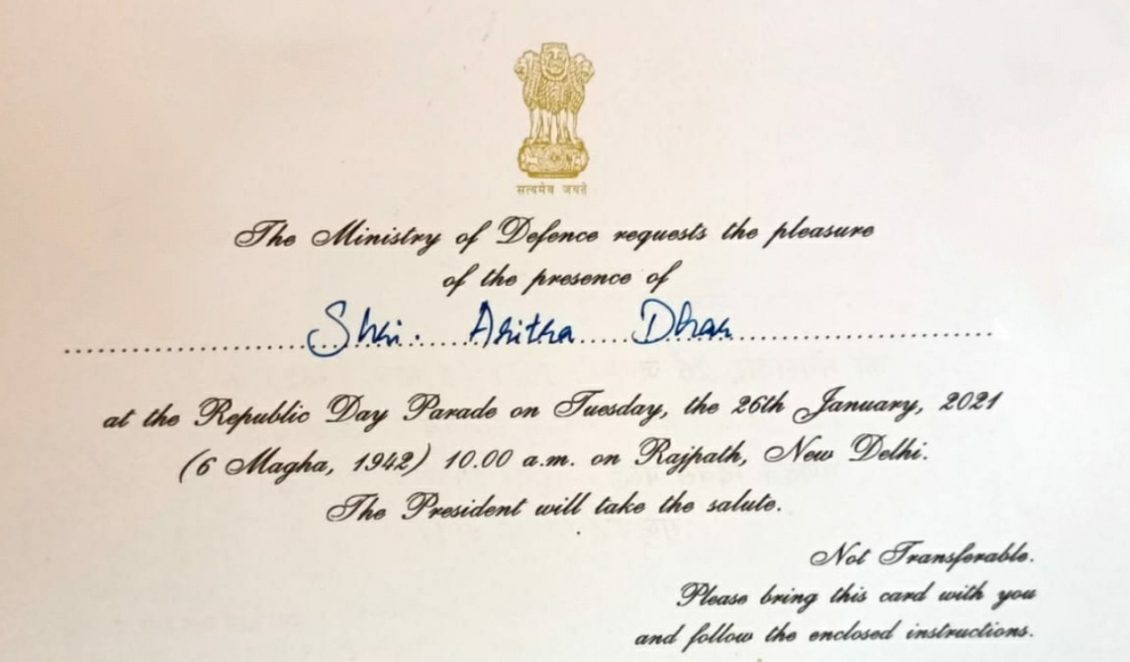 सत्यमेव जयते
The Ministry of Defence requests the pleasure
of the presence of
Shri. Aritra Dhar
at the Republic Day Parade on Tuesday, the 26th January, 2021
(6 Magha, 1942) 10.00 a.m. on Rajpath, New Delhi.
The President will take the salute.
Not Transferable.
Please bring this card with you
and follow the enclosed instructions.